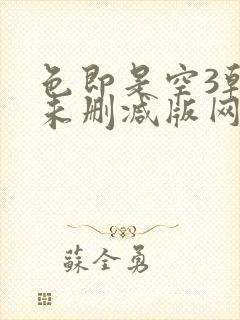 色即是空3韩
未删减版网
蘇全勇